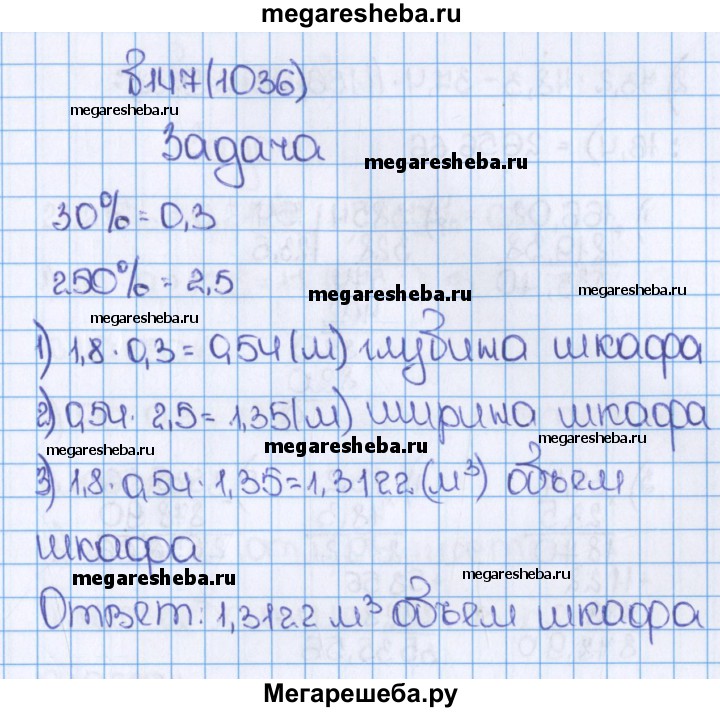 megaresheba.ru
В147(1036)
megaresheba.ru
Задача
megaresheba.ru
30% = 0,3
megaresheba.ru
250% = 2,5
megaresheba.ru
megaresheba.ru
megaresheba.ru
1) 1,8 · 0,3 = 0,54 (м) глубина шкафа
2) 0,54 · 2,5 = 1,35 (м) ширина шкафа
megaresheba.ru
megaresheba.ru
megaresheba.ru
3) 1,8 · 0,54 · 1,35 = 1,3122 (м³) объем
шкафа
megaresheba.ru
megaresheba.ru
Ответ: 1,3122 м³ объем шкафа
Мегарешеба.ру